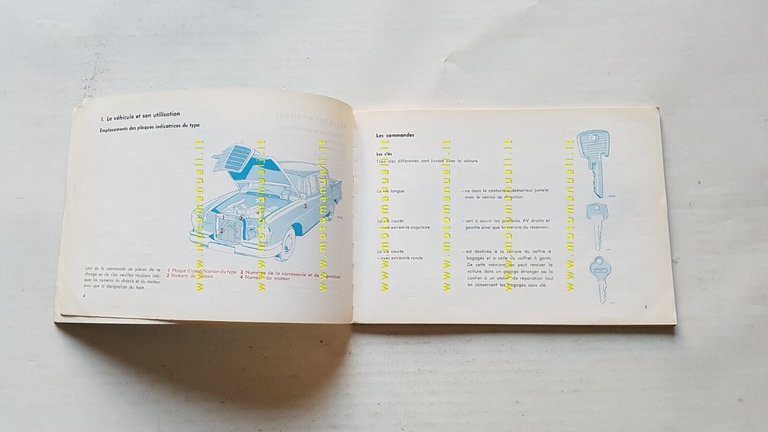 I. Le véhicule et son utilisation
Emplacements des plaques indicatrices du type
Lors de la commande de pièces de re-
change ou de clés, veuillez toujours indi-
quer les numéros du châssis et du moteur
ainsi que la désignation du type.
1 Plaque d'identification du type
2 Numéro du châssis
3 Numéros de la carrosserie et de la peinture
4 Numéro du moteur
4
Les commandes
Les clés
Trois clés différentes sont livrées avec la voiture.
La clé longue
– va dans le contacteur-démarreur jumelé
avec le verrou de direction.
La clé courte
– avec extrémité angulaire
– sert à ouvrir les portières AV droite et
gauche ainsi que la serrure du réservoir;
La clé courte
– avec extrémité ronde
– est destinée à la serrure du coffre à
bagages et à celle du coffret à gants.
De cette manière on peut remiser la
voiture dans un garage étranger ou la
confier à un atelier de réparation tout
en conservant les bagages sous clé.
5
www.motomanuali.it
www.motomanuali.it
www.motomanuali.it
www.motomanuali.it
www.motomanuali.it
www.motomanuali.it
www.motomanuali.it